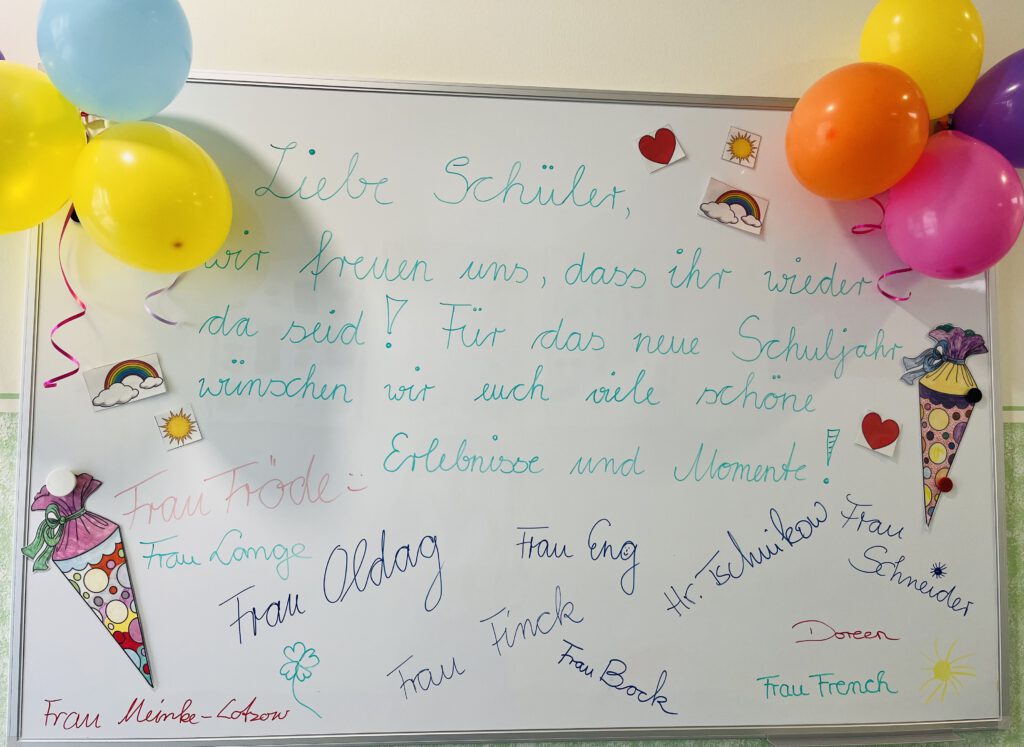 Liebe Schüler,
wir freuen uns, dass ihr wieder
da seid! Für das neue Schuljahr
wünschen wir euch viele schöne
Erlebnisse und Momente!
Frau Fröde :-)
Frau Lange
Frau Oldag
Frau Eng
Hr. Tschnikow
Frau
Schneider
Frau Finck
Frau Bock
Doreen
Frau French
Frau Meinke-Lotzow